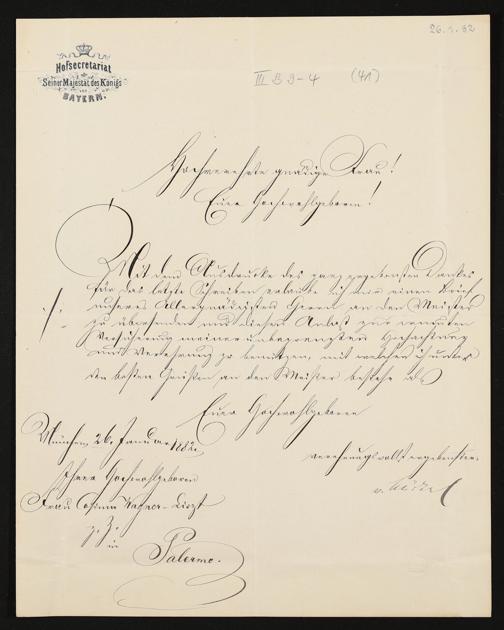 26.1.82
Hofsecretariat
Seiner Majestät des Königs
von
BAYERN.
III B 9-4 (41)
Hochverehrte gnädige Frau!
Euer Hochwohlgeboren!
Mit dem Ausdrucke des ganz ergebensten Dankes
für das letzte Schreiben erlaube ich mir einen Brief
unseres Allergnädigsten Herrn an den Meister
zu übersenden und diesen Anlaß zur erneuten
Versicherung meiner unbegrenzten Hochachtung
und Verehrung zu benützen, mit welcher ich unter
den besten Grüßen an den Meister bestehe als
Euer Hochwohlgeboren
München, 26. Januar 1882.
verehrungsvollst ergebenster
Ihrer Hochwohlgeboren
Frau Cosima Wagner-Liszt
z. Z.
in
Palermo.